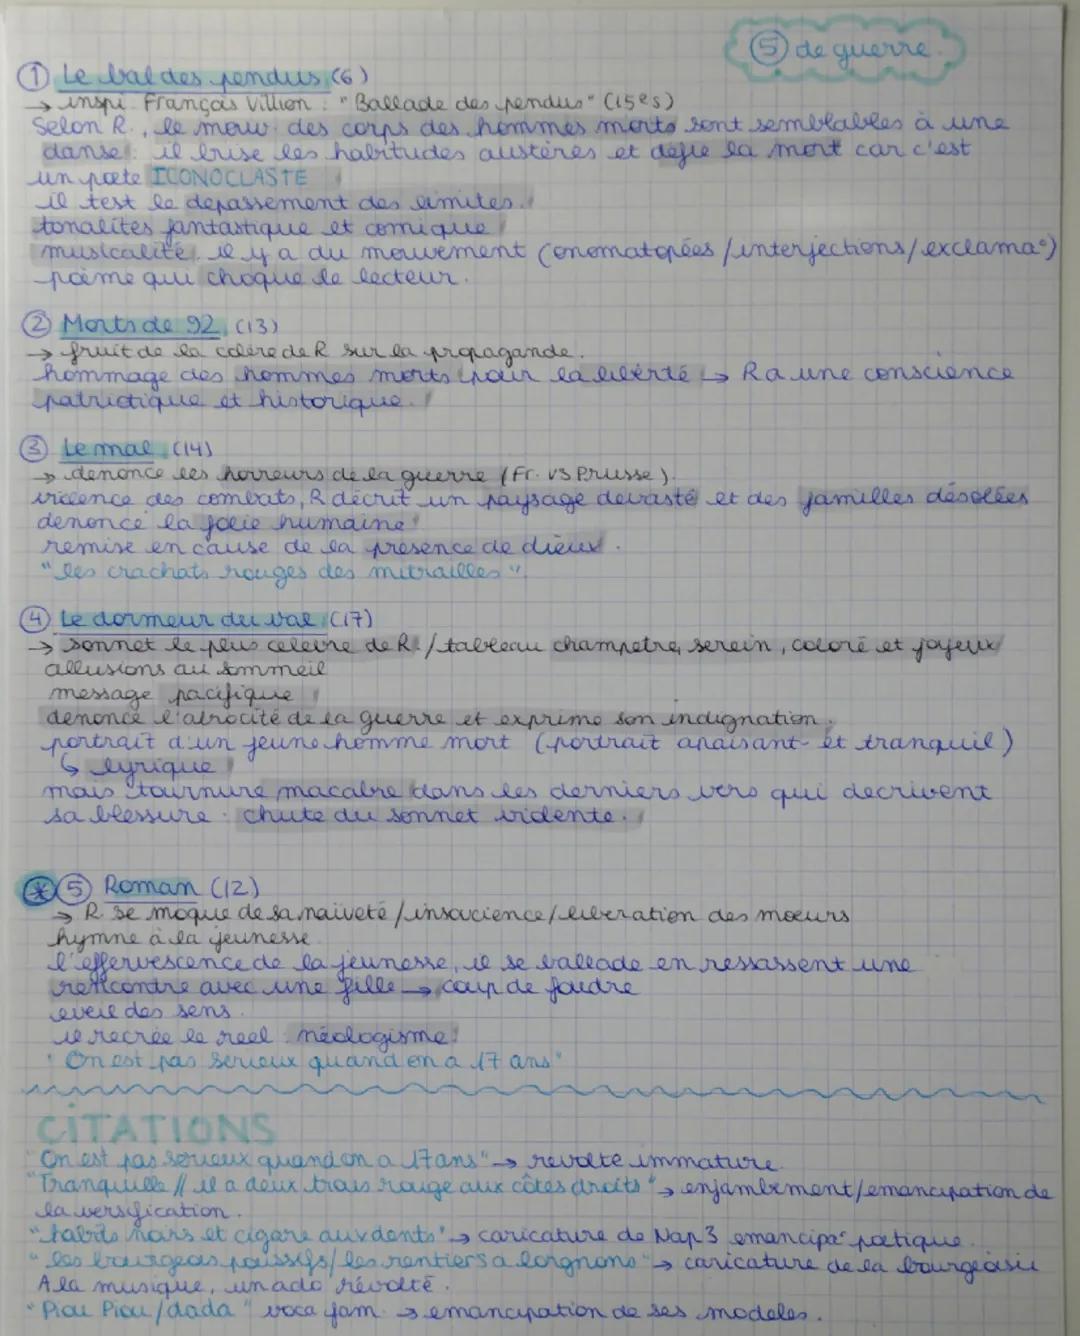 ⑤ de guerre.
① Le bal des pendus (6)
→ inspi François Villion : "Ballade des pendus" (15es)
Selon R., le mouv. des corps des hommes morts sont semblables à une
danse : il brise les habitudes austères et défie la mort car c'est
un poète ICONOCLASTE
il test le dépassement des limites.
tonalités fantastique et comique
musicalité, il y a du mouvement (onomatopées/interjections/exclama°)
poème qui choque le lecteur.
② Morts de 92 (13)
→ fruit de la colère de R sur la propagande.
hommage des hommes morts pour la liberté ↳ R a une conscience
patriotique et historique.
③ Le mal (14)
→ dénonce les horreurs de la guerre (Fr. vs Prusse).
violence des combats, R décrit un paysage dévasté et des familles désolées
dénonce la folie humaine
remise en cause de la présence de dieux.
"les crachats rouges des mitrailles"
④ Le dormeur du val (17)
→ sonnet le plus celebre de R. / tableau champetre, serein, coloré et joyeux
allusions au sommeil
message pacifique
denonce l'atrocité de la guerre et exprime son indignation.
portrait d'un jeune homme mort (portrait apaisant et tranquil)
↳ lyrique
mais tournure macabre dans les derniers vers qui decrivent
sa blessure. chute du sonnet vidente.
* ⑤ Roman (12)
→ R se moque de sa naiveté/insoucience/liberation des moeurs
hymne à la jeunesse
l'effervescence de la jeunesse, il se ballade en ressassent une
rencontre avec une fille → coup de foudre
eveil des sens.
il recrée le reel : néologisme
"On est pas serieux quand on a 17 ans"
CITATIONS
"On est pas serieux quand on a 17 ans" → revolte immature.
"Tranquille // il a deux trous rouge aux côtes droits" → enjambement/emancipation de
la versification.
"habits noirs et cigare aux dents" → caricature de Nap 3 emancipa° poetique.
"les bourgeois poussifs/les rentiers a lorgnons" → caricature de la bourgeoisie
A la musique, un ado révolté.
"Piou Piou/dada" voca fam. → emancipation de ses modeles.